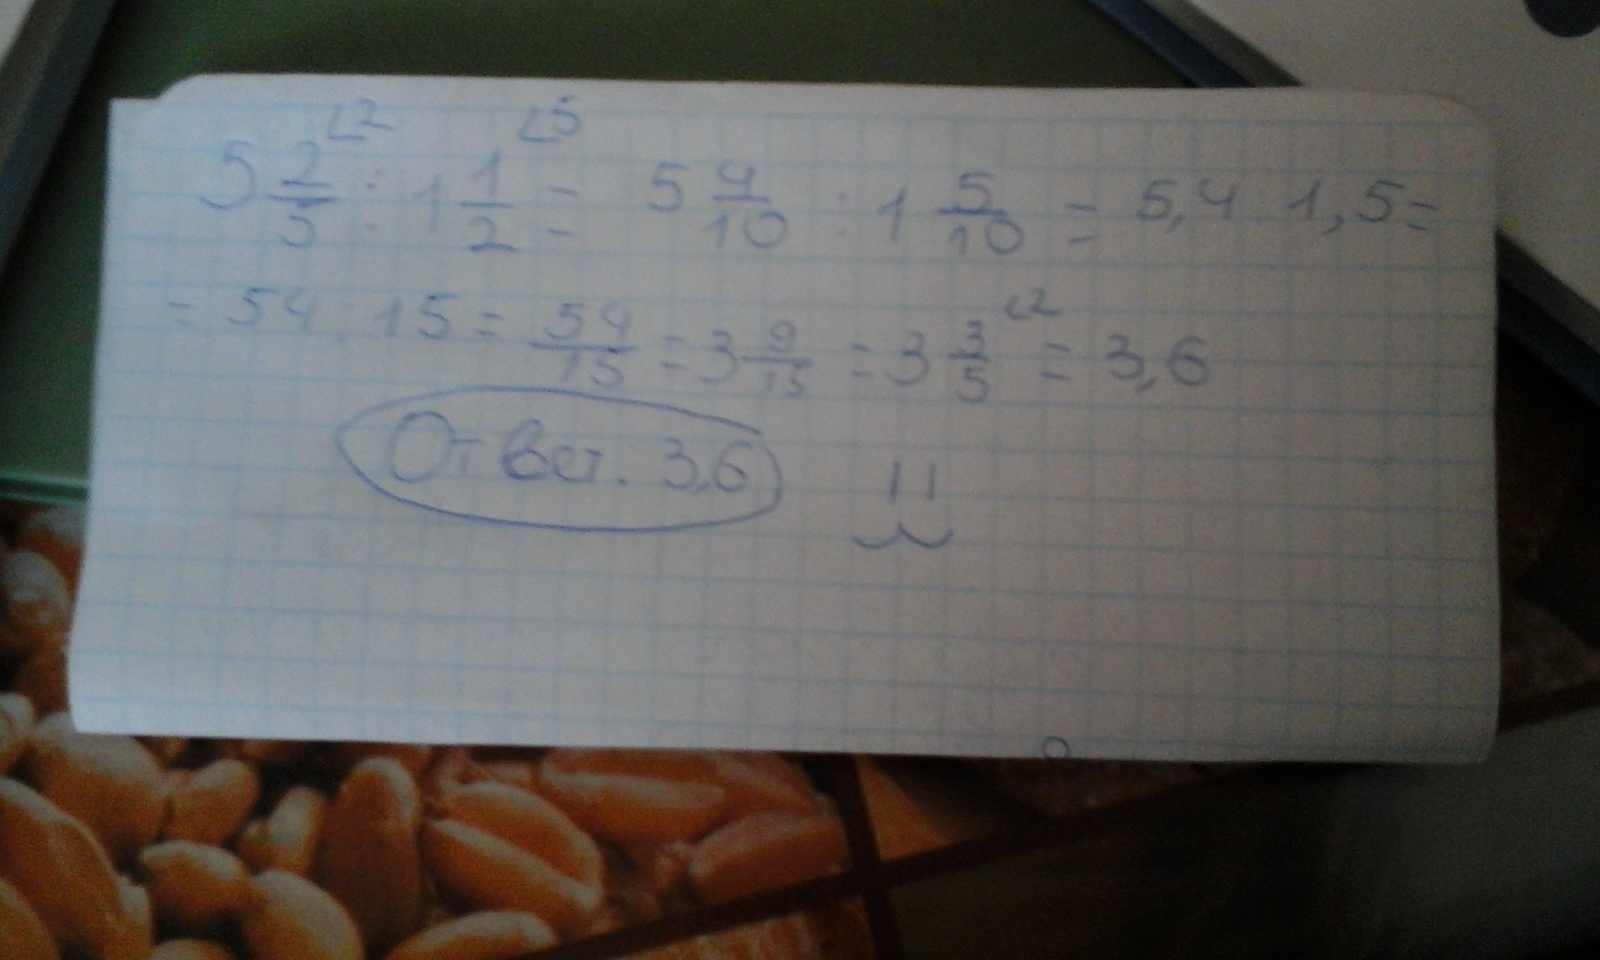 5 2/5 ∟2 : 1 1/2 ∟5 = 5 4/10 : 1 5/10 = 5,4 : 1,5 =
= 54 : 15 = 54/15 = 3 9/15 = 3 3/5 ∟2 = 3,6
Ответ. 3,6